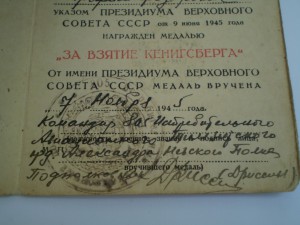 УКАЗОМ ПРЕЗИДИУМА ВЕРХОВНОГО
СОВЕТА СССР от 9 июня 1945 года
НАГРАЖДЕН МЕДАЛЬЮ
„ЗА ВЗЯТИЕ КЕНИГСБЕРГА“
ОТ ИМЕНИ ПРЕЗИДИУМА ВЕРХОВНОГО
СОВЕТА СССР МЕДАЛЬ ВРУЧЕНА
7 Ноября 1945 года.
Командир Истребительного
Авиационного
Александра Невского Полка
вручившего медаль)
Подполковник